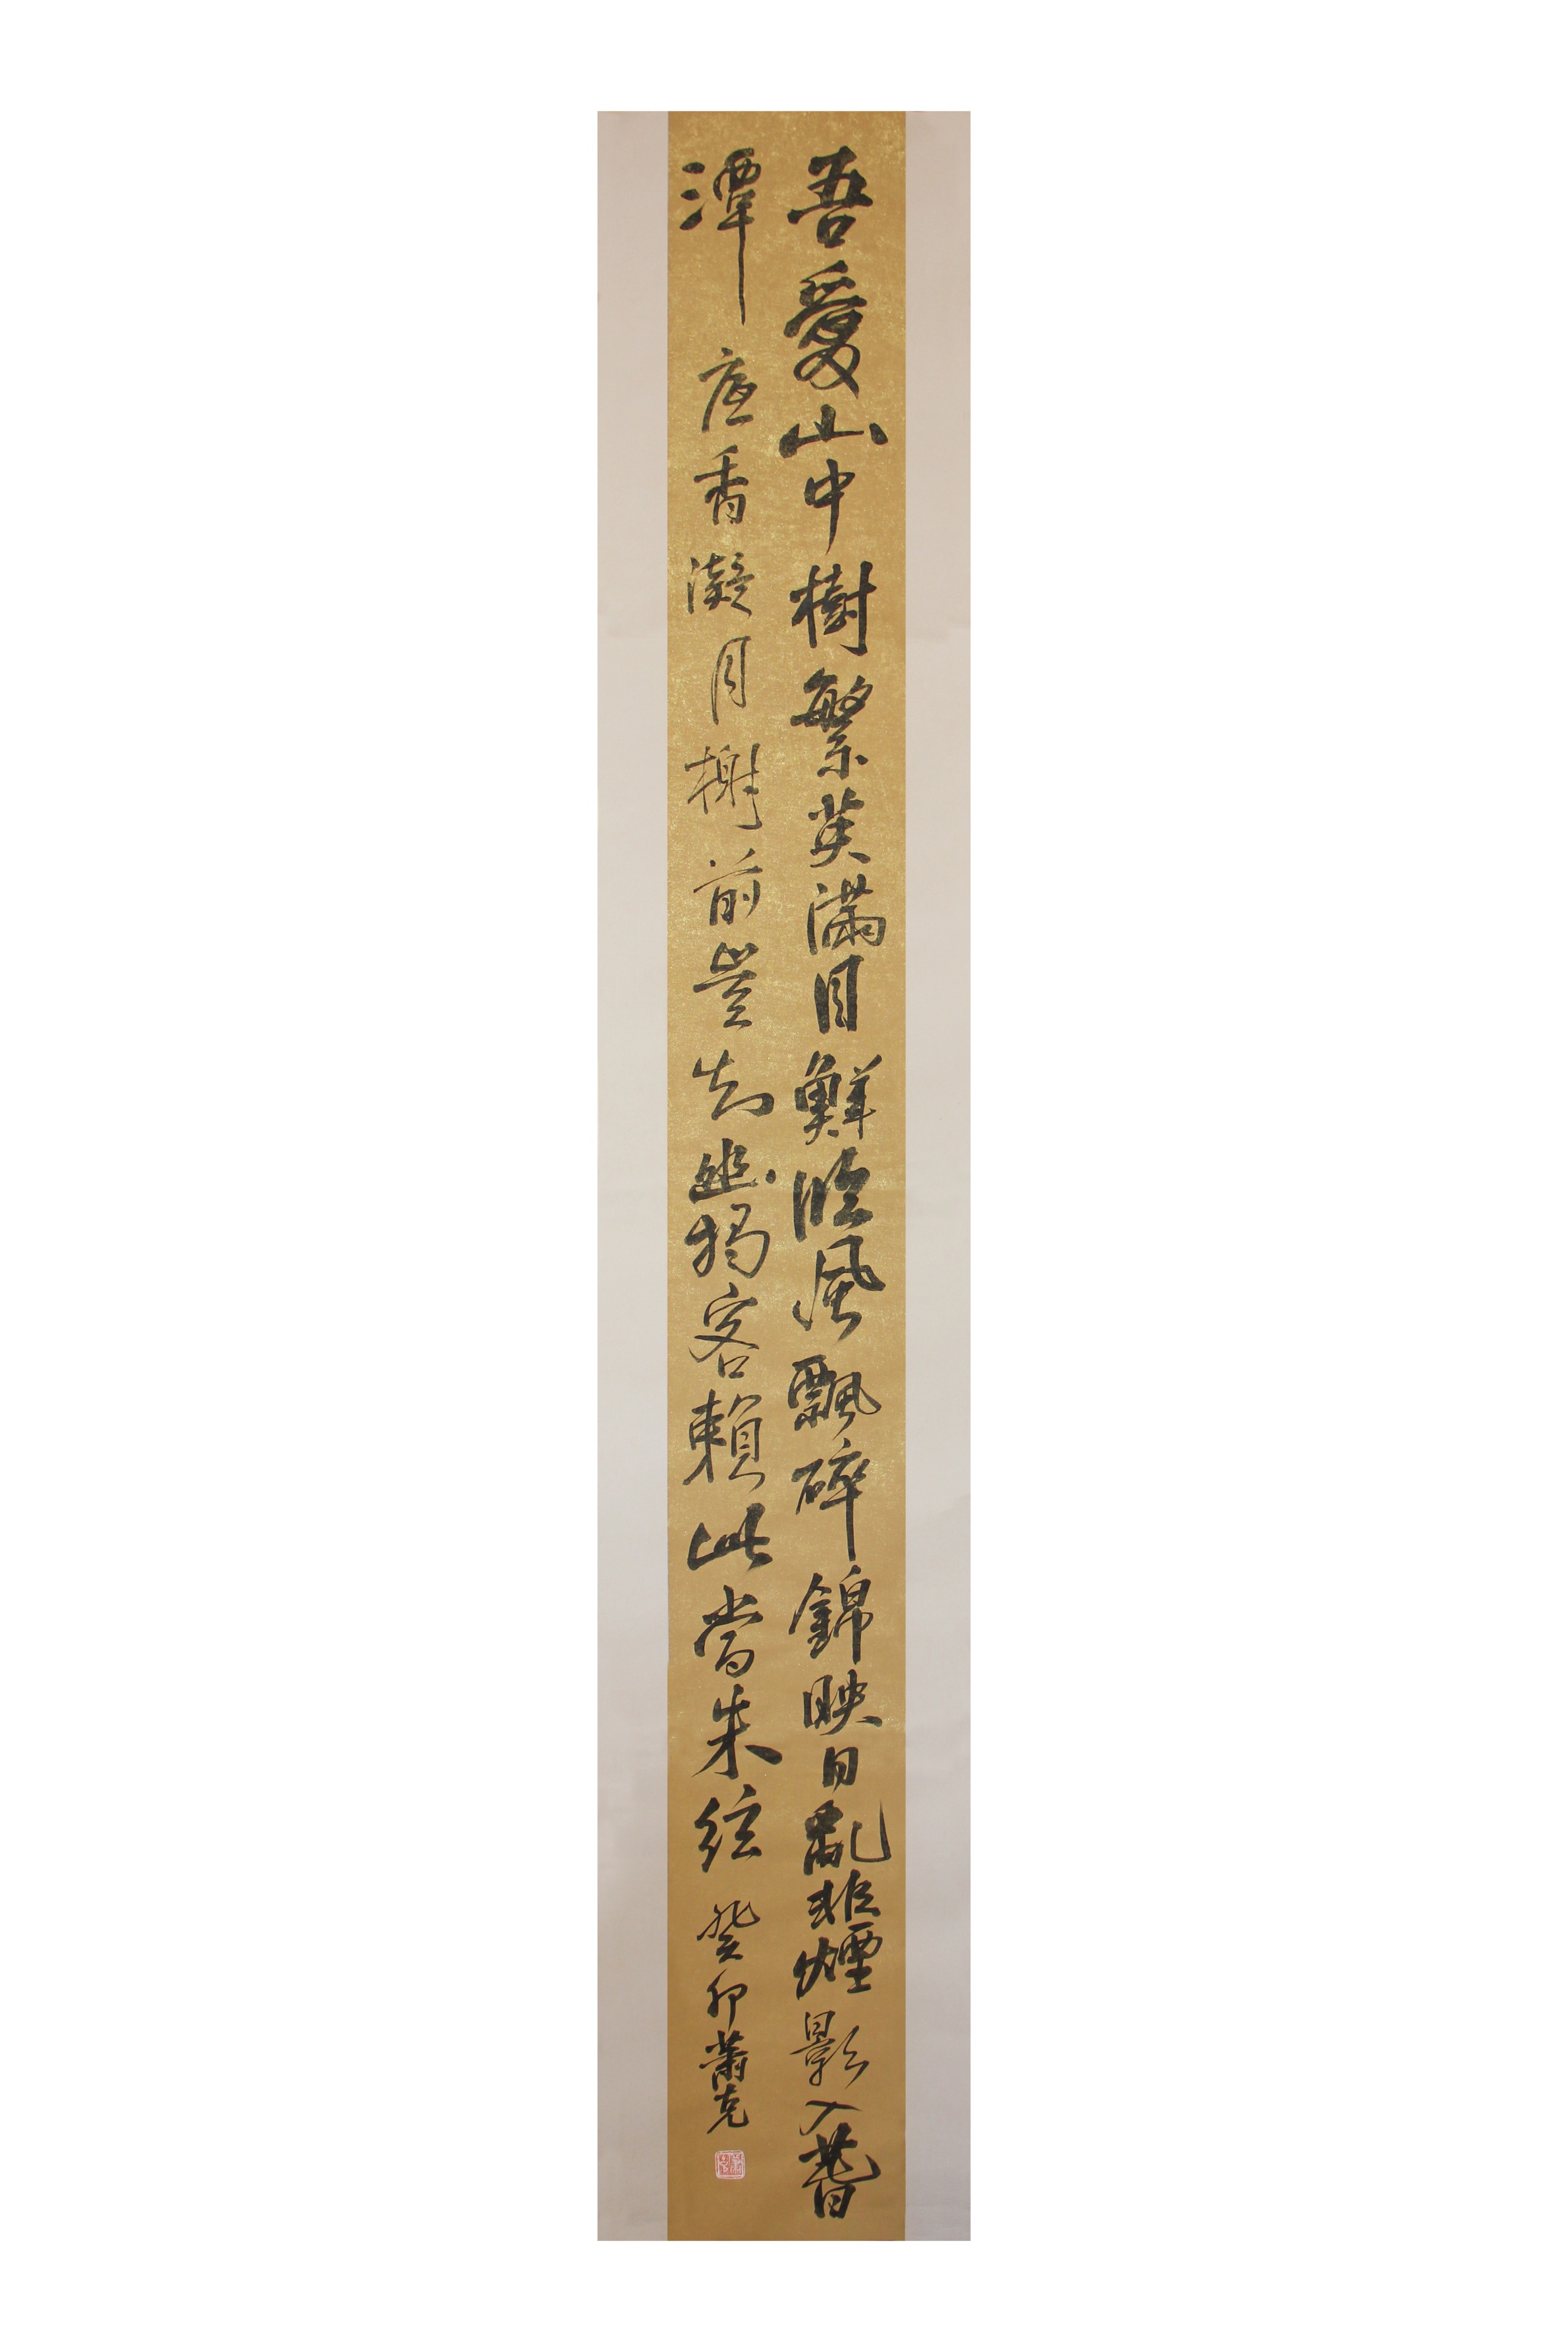 吾愛山中樹繁英滿目鮮臨風飄碎錦映日亂非煙影入萅
潭底香凝月榭前豈知幽獨客賴此當朱絃 癸卯蕭克